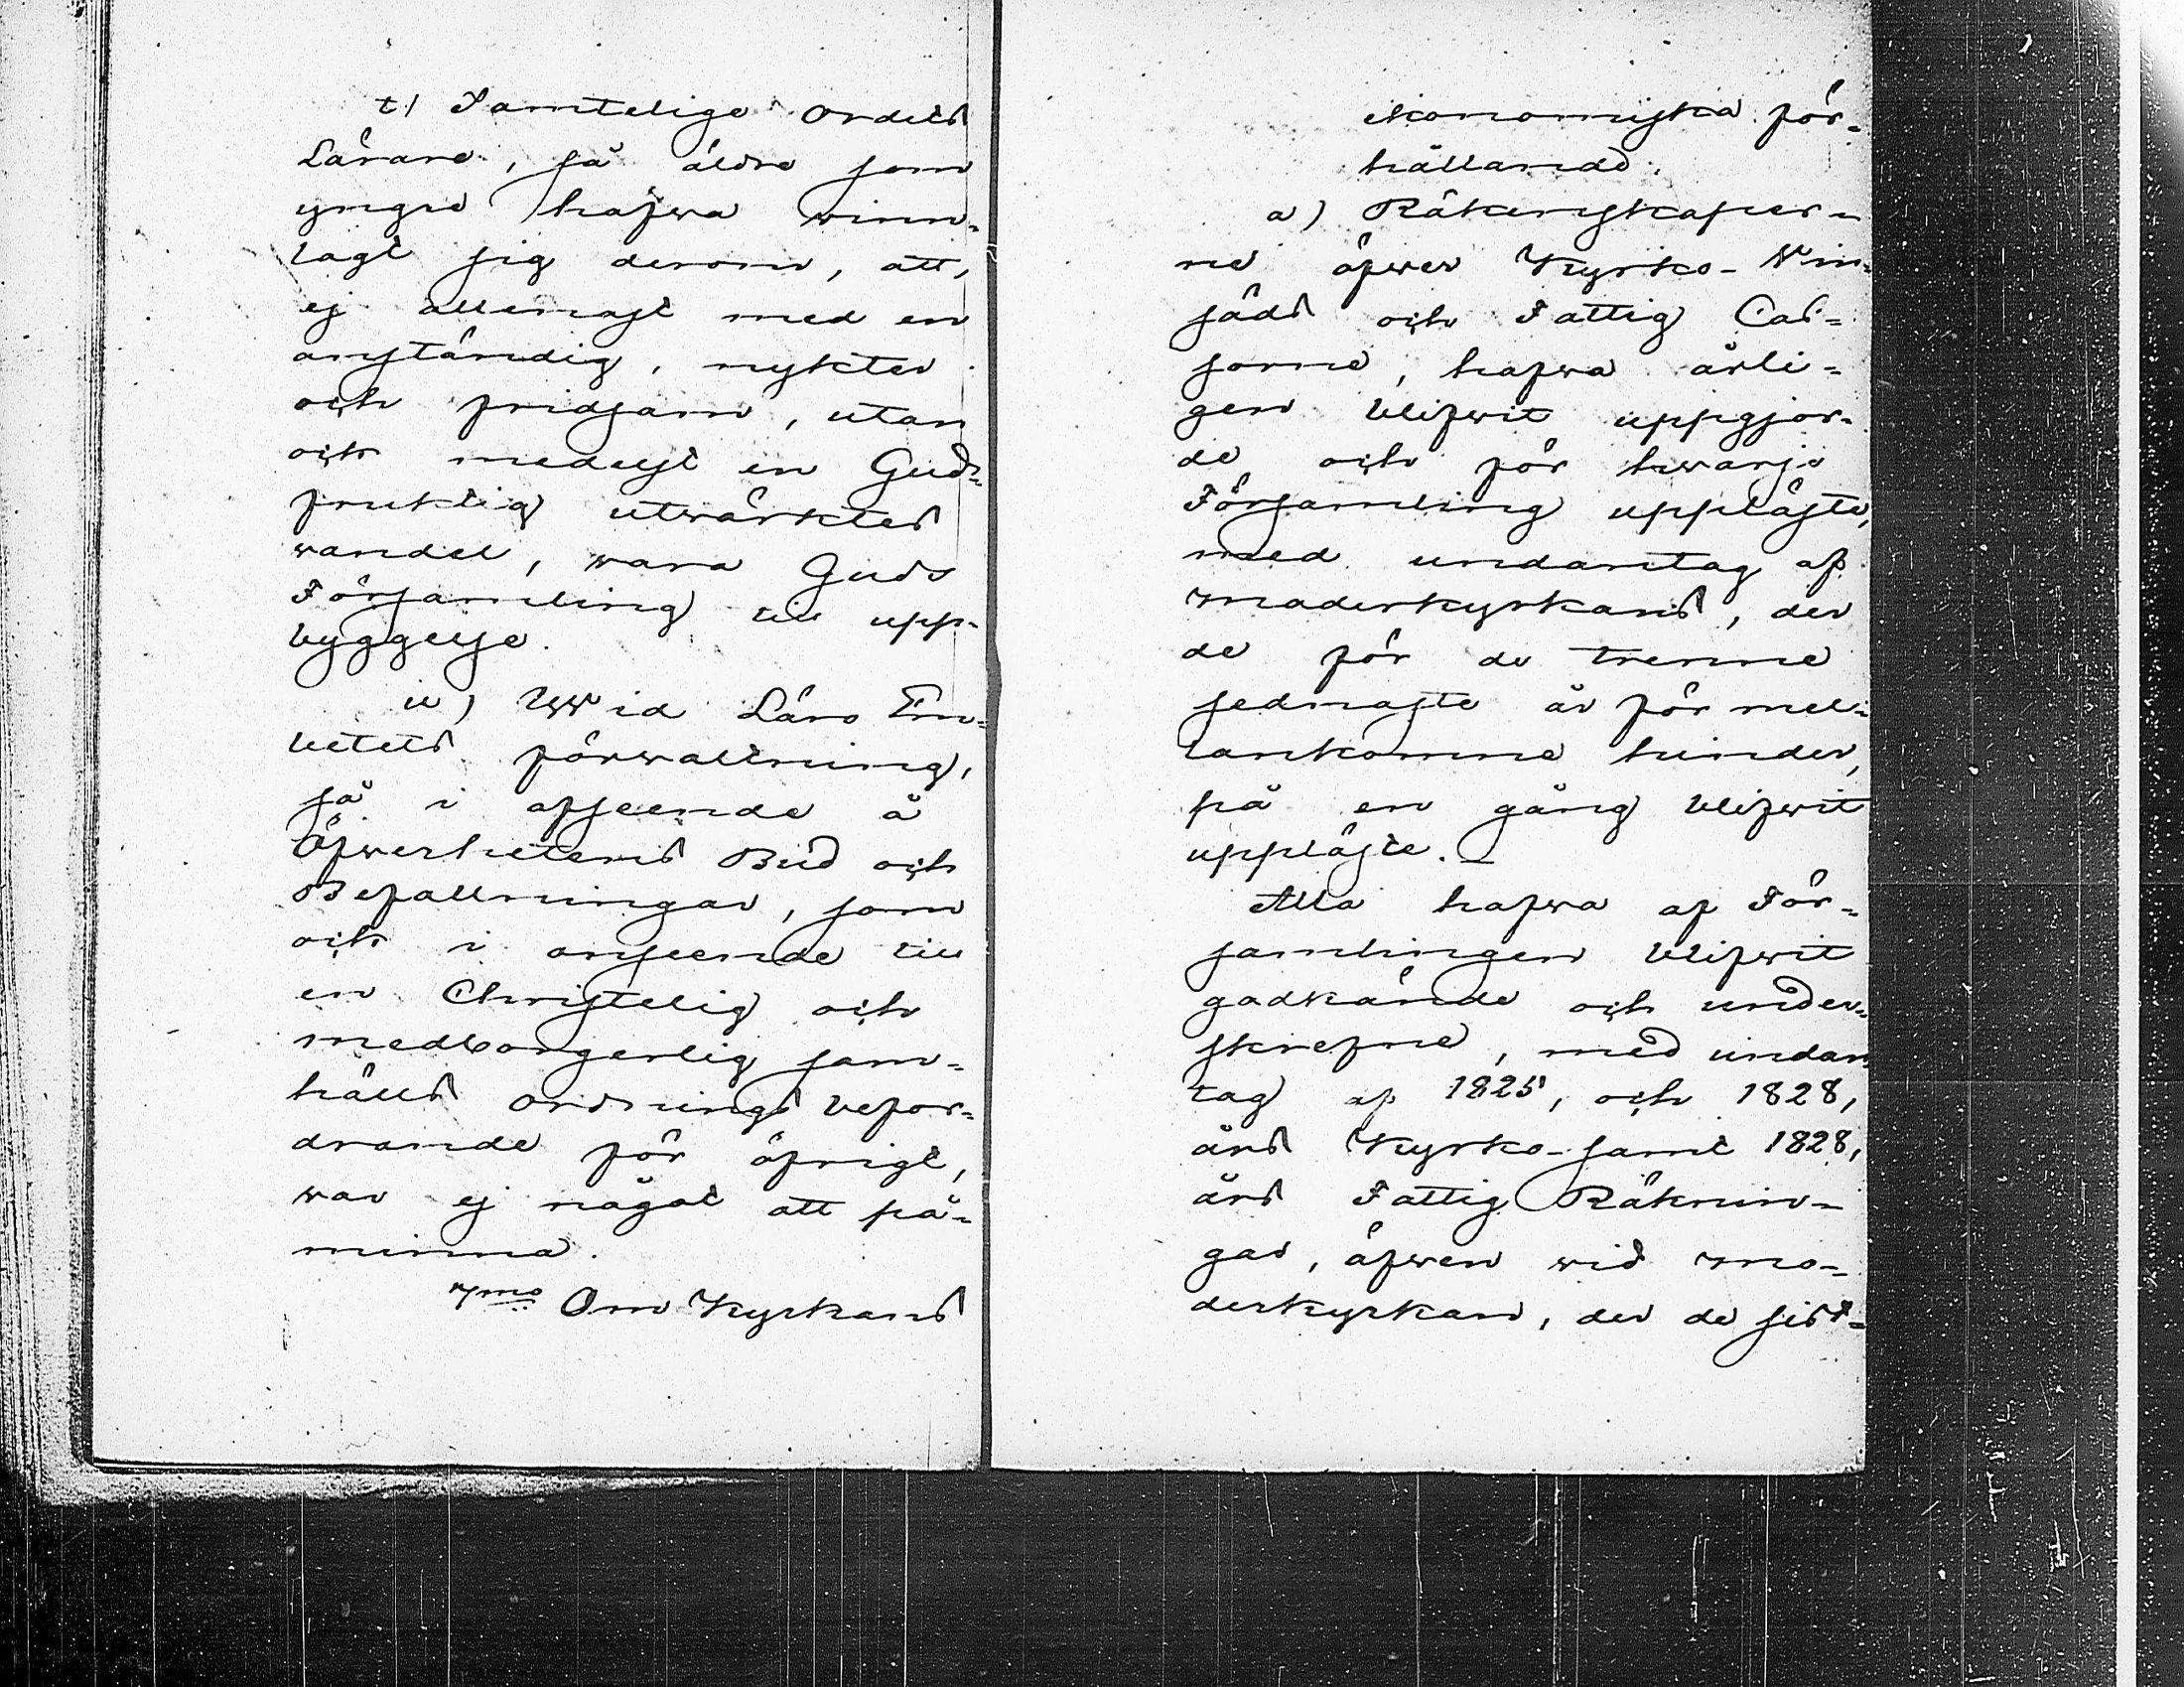 t) Samtelige Ordets
Lärare, så äldre som
yngre hafwa winn-
lagt sig derom, att,
ej allenast med en
anständig, nykter
och fridsam, utan
och medelst en Gud-
fruktig utwärktes
wandel, wara Guds
Församling till upp-
byggelse.
u) Wid Läro Em-
betets förwaltning,
så i afseende å
Öfwerhetens Bud och
Befallningar, som
och i anseende till
en Christelig och
medborgerlig sam-
hälls ordnings befor-
drande för öfrigt,
war ej något att på-
minna.
7mo Om Kyrkans
ekonomiska för-
hållande.
a) Räkenskaper-
ne öfwer Kyrko- Win-
säds och Fattig Cas-
sorne, hafwa årli-
gen blifwit uppgjor-
de och för hwarje
Församling uppläste,
med undantag af
moderkyrkans, der
de för de trenne
sednaste år för mel-
lankomne hinder,
på en gång blifwit
uppläste. —
Alla hafwa af För-
samlingen blifwit
godkände och under-
skrefne, med undan
tag af 1825, och 1828,
års Kyrko- samt 1828,
års Fattig Räknin-
gar, äfwen wid mo-
derkyrkan, der de sist-